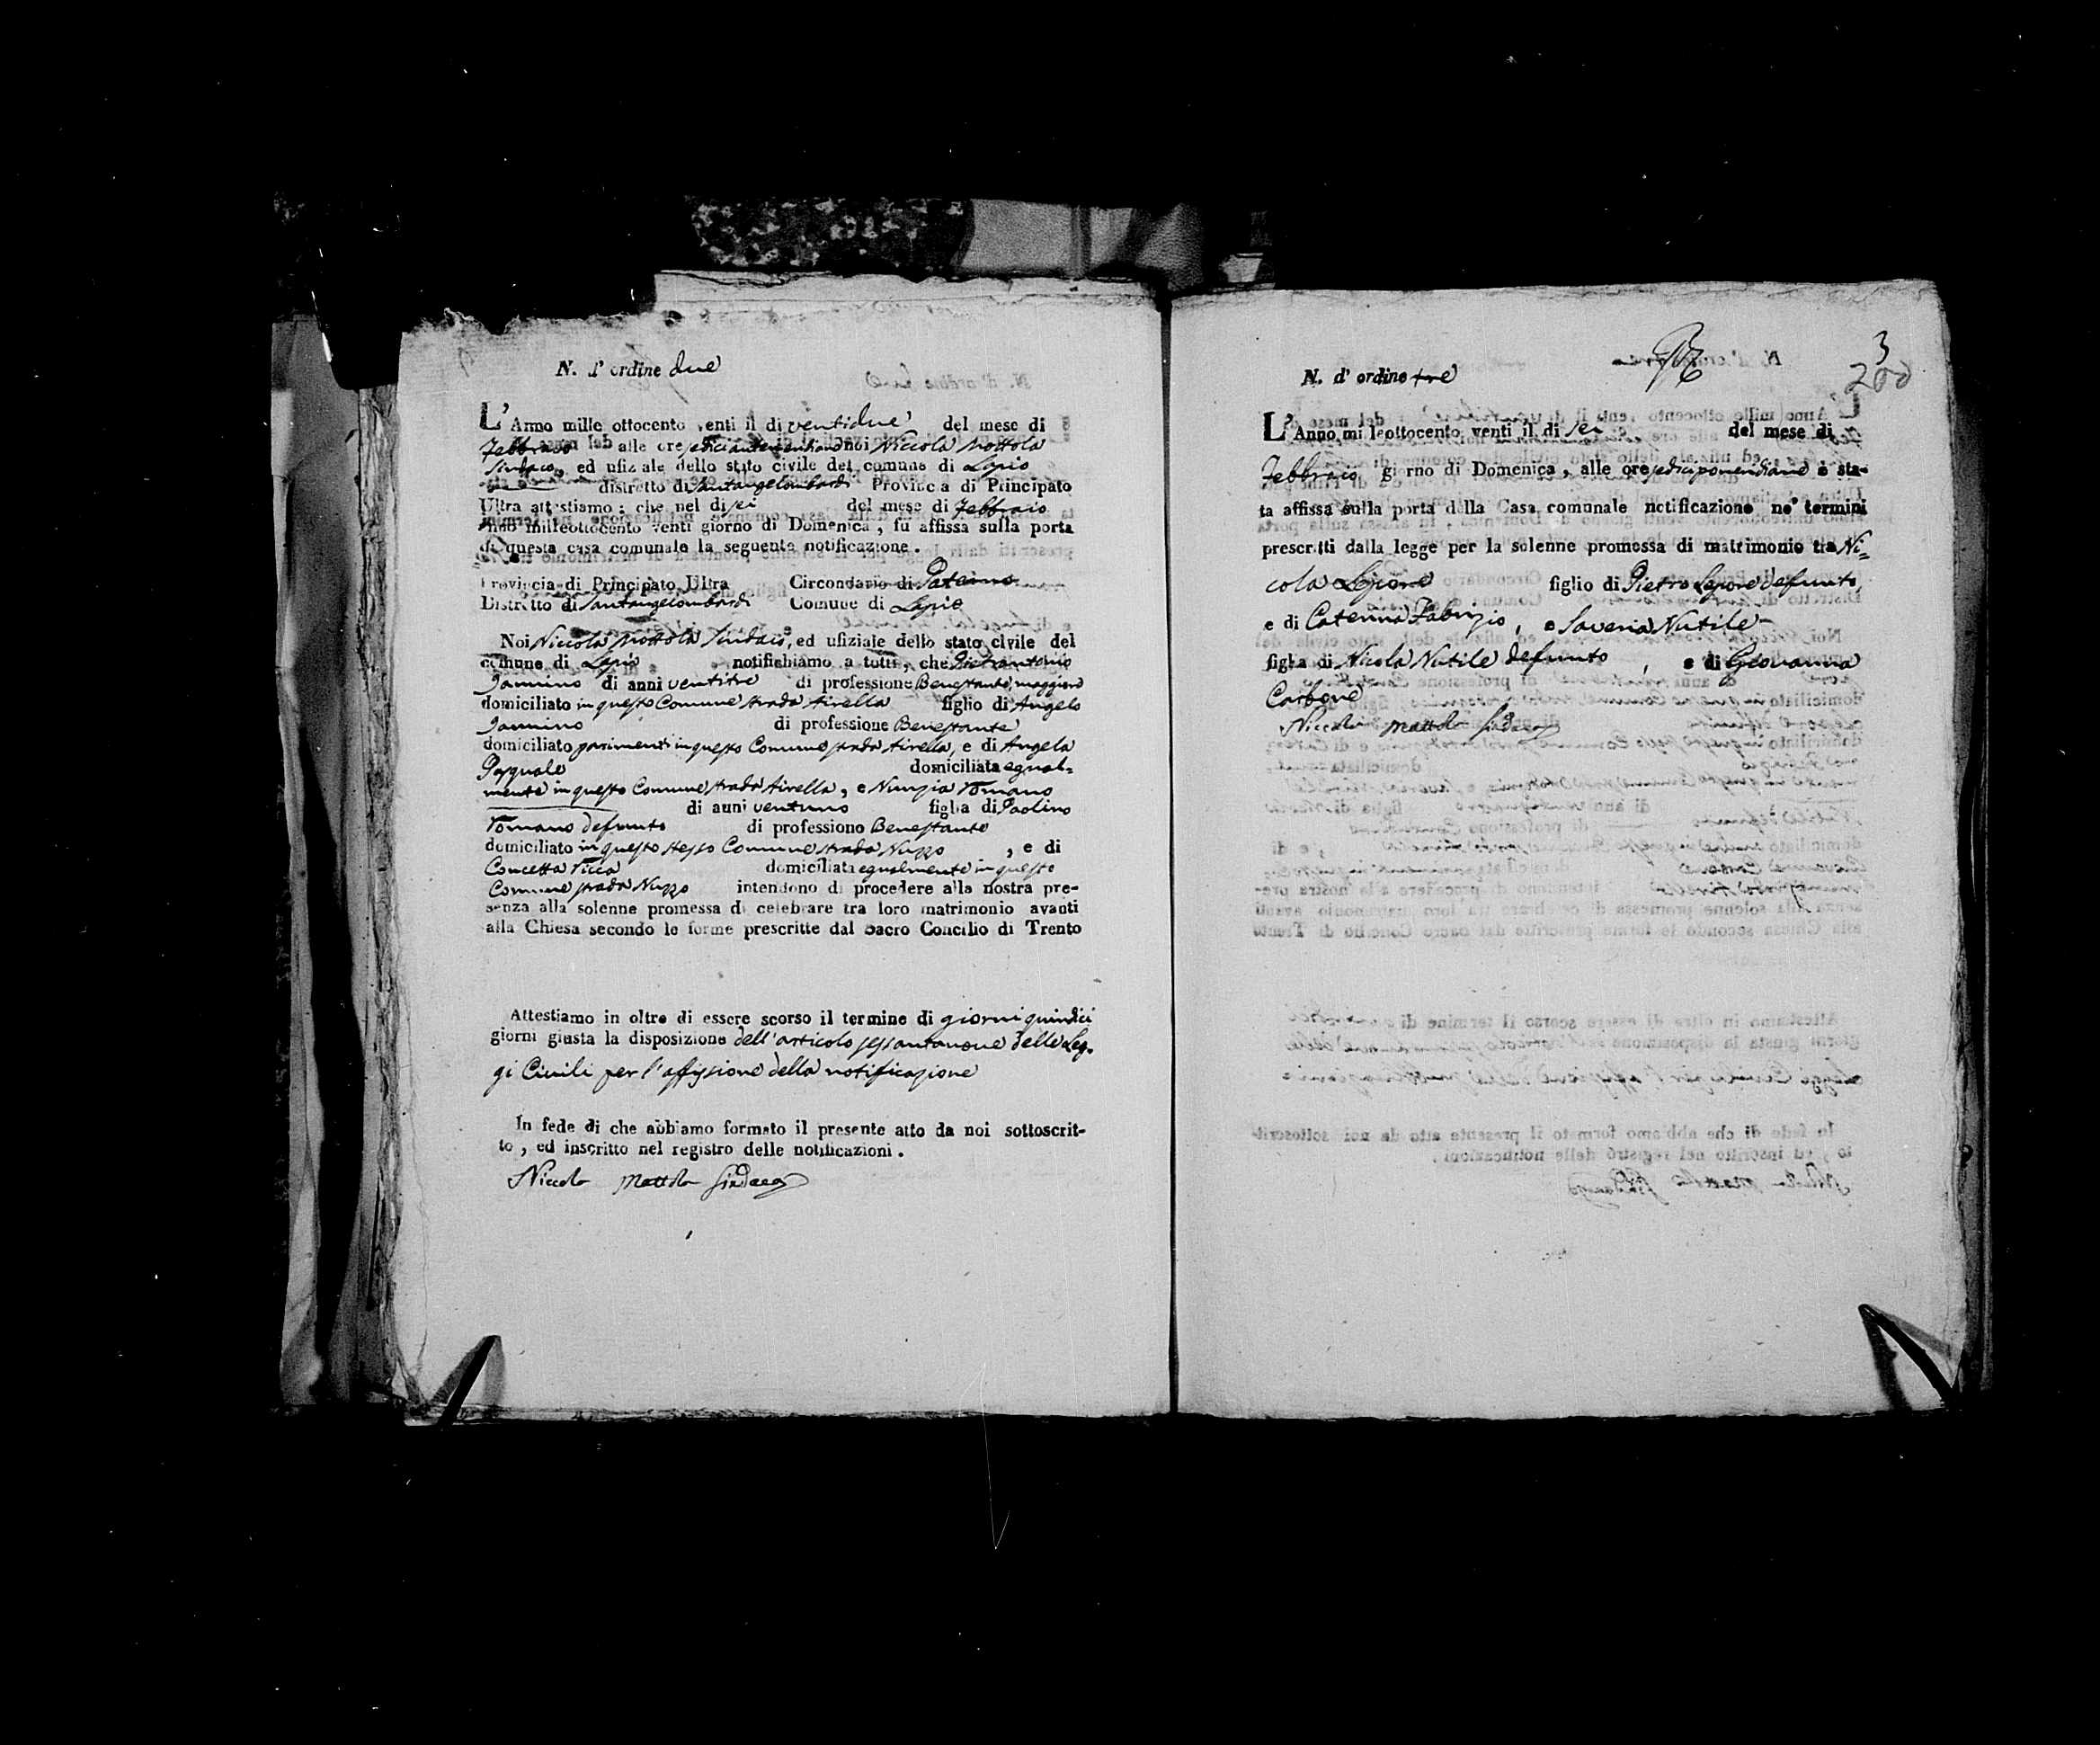 N. d' ordine due
L'Anno mille ottocento venti il di ventidue del mese di
Febbraio alle ore sedici antemeridiane noi Niccola Mottola
Sindaco, ed ufiziale dello stato civile del comune di Lapio
distretto di Santangelombardi Provincia di Principato
Ultra attestiamo : che nel di sei del mese di Febbraio
Anno milleottocento venti giorno di Domenica, fu affissa sulla porta
di questa casa comunale la seguente notificazione.
Provincia di Principato Ultra Circondario di Paterno
Distretto di Santangelombardi Comune di Lapio
Noi Niccola Mottola Sindaco, ed ufiziale dello stato civile del
comune di Lapio notifichiamo a tutti, che Pietrantonio
Jannino di anni ventitre di professione Benestante, maggiore
domiciliato in questo Comune strada Airella figlio di Angelo
Jannino di professione Benestante
domiciliato parimenti in questo Comune strada Airella, e di Angela
Pasquale domiciliata egual-
mente in questo Comune strada Airella, e Nunzia Romano
di anni ventuno figlia di Paolino
Romano defunto di professione Benestante
domiciliato in questo stesso Comune strada Nuzzo , e di
Concetta Ricca domiciliata egualmente in questo
Comune strada Nuzzo intendono di procedere alla nostra pre-
senza alla solenne promessa di celebrare tra loro matrimonio avanti
alla Chiesa secondo le forme prescritte dal Sacro Concilio di Trento
Attestiamo in oltre di essere scorso il termine di giorni quindici
giorni giusta la disposizione dell'articolo sessantanove delle Leg-
gi Civili per l'affissione della notificazione
In fede di che abbiamo formato il presente atto da noi sottoscrit-
to, ed inscritto nel registro delle notificazioni.
Niccola Mottola Sindaco
3
200
N. d' ordine tre
L'Anno milleottocento venti il di sei del mese di
Febbraio giorno di Domenica, alle ore sedici pomeridiane è sta-
ta affissa sulla porta della Casa comunale notificazione ne' termini
prescritti dalla legge per la solenne promessa di matrimonio tra Ni-
cola Lepore figlio di Pietro Lepore defunto,
e di Caterina Fabrizio, e Saveria Nutile
figlia di Nicola Nutile defunto , e di Geovanna
Carbone
Niccola Mottola Sindaco